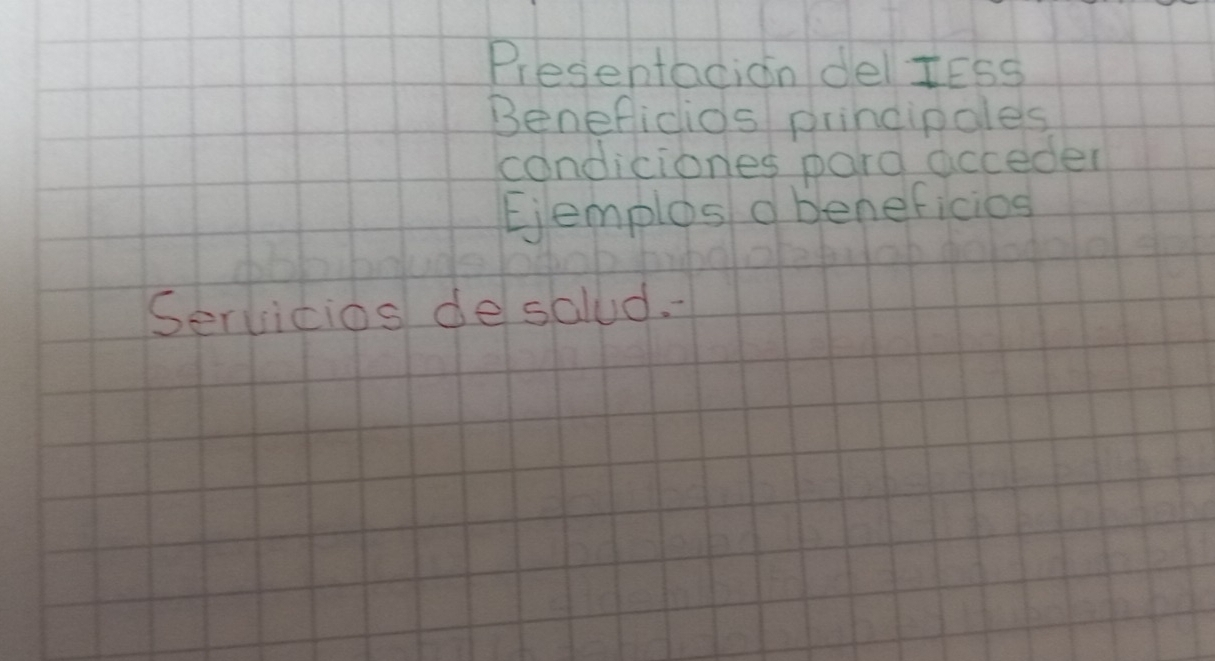 Presentación del IESS
Beneficios principales
condiciones para acceder
Ejemplos a beneficios
Servicios de salud.-